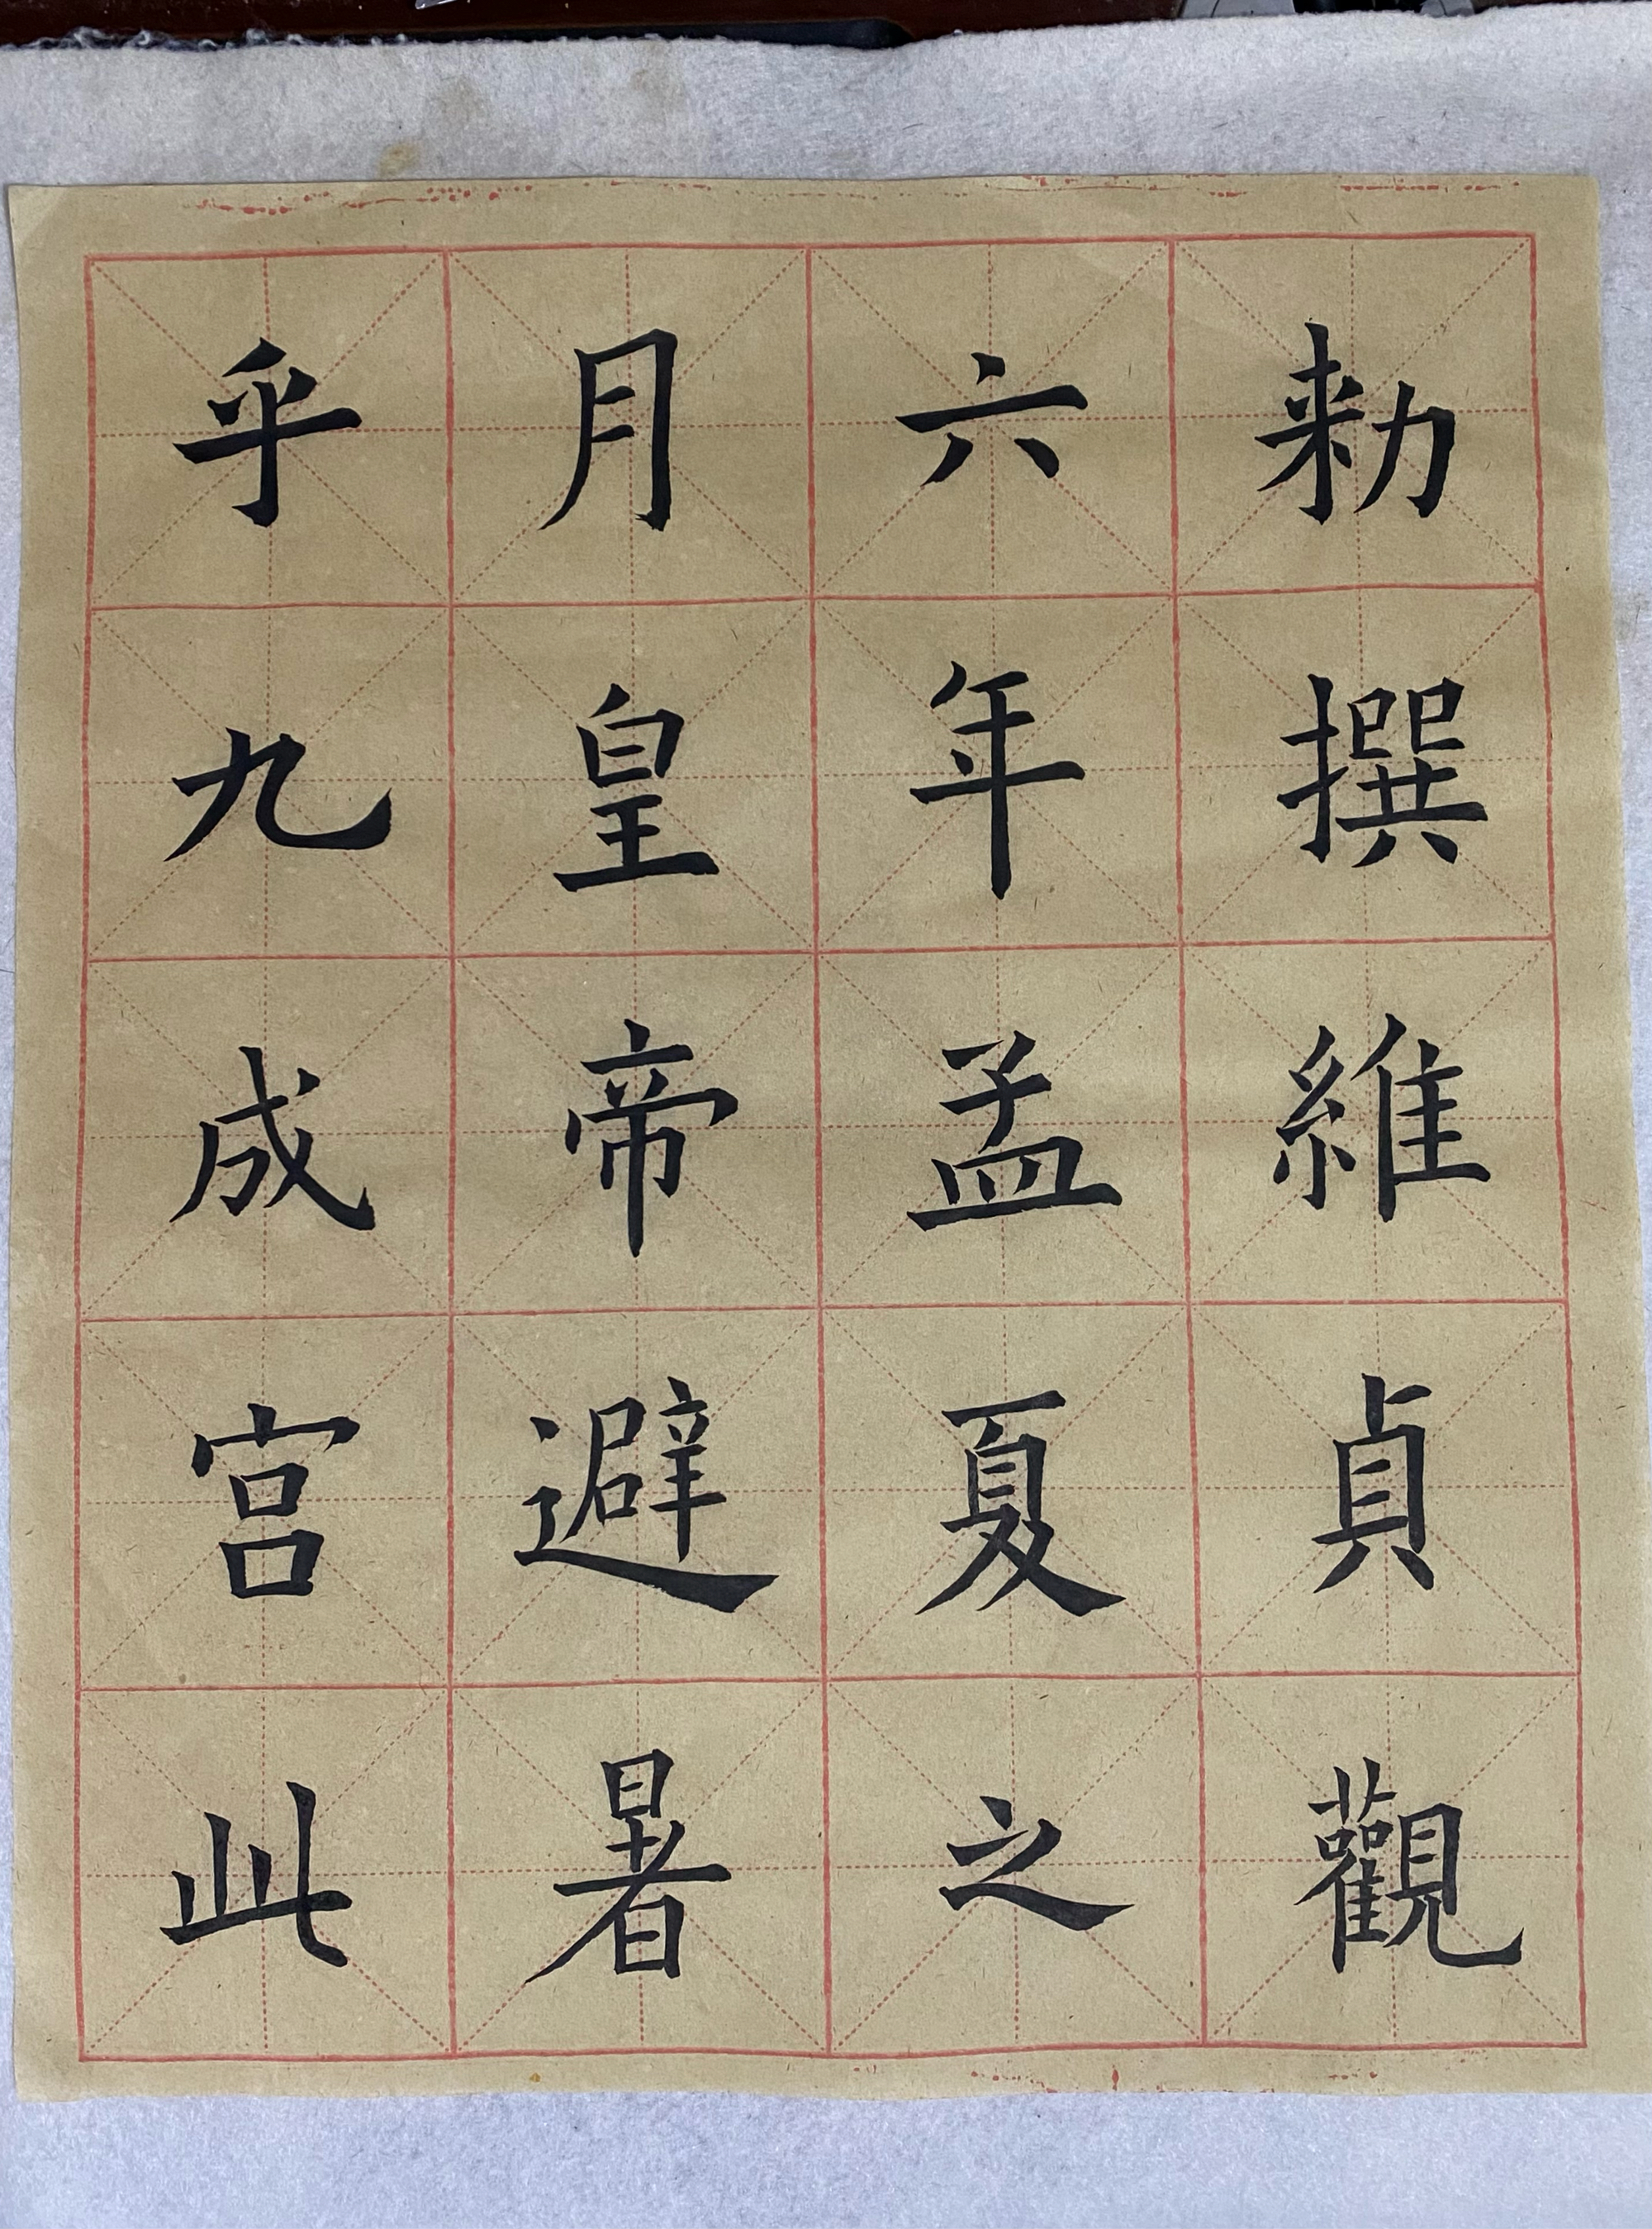 勑撰維貞觀
六年孟夏之
月皇帝避暑
乎九成宮此